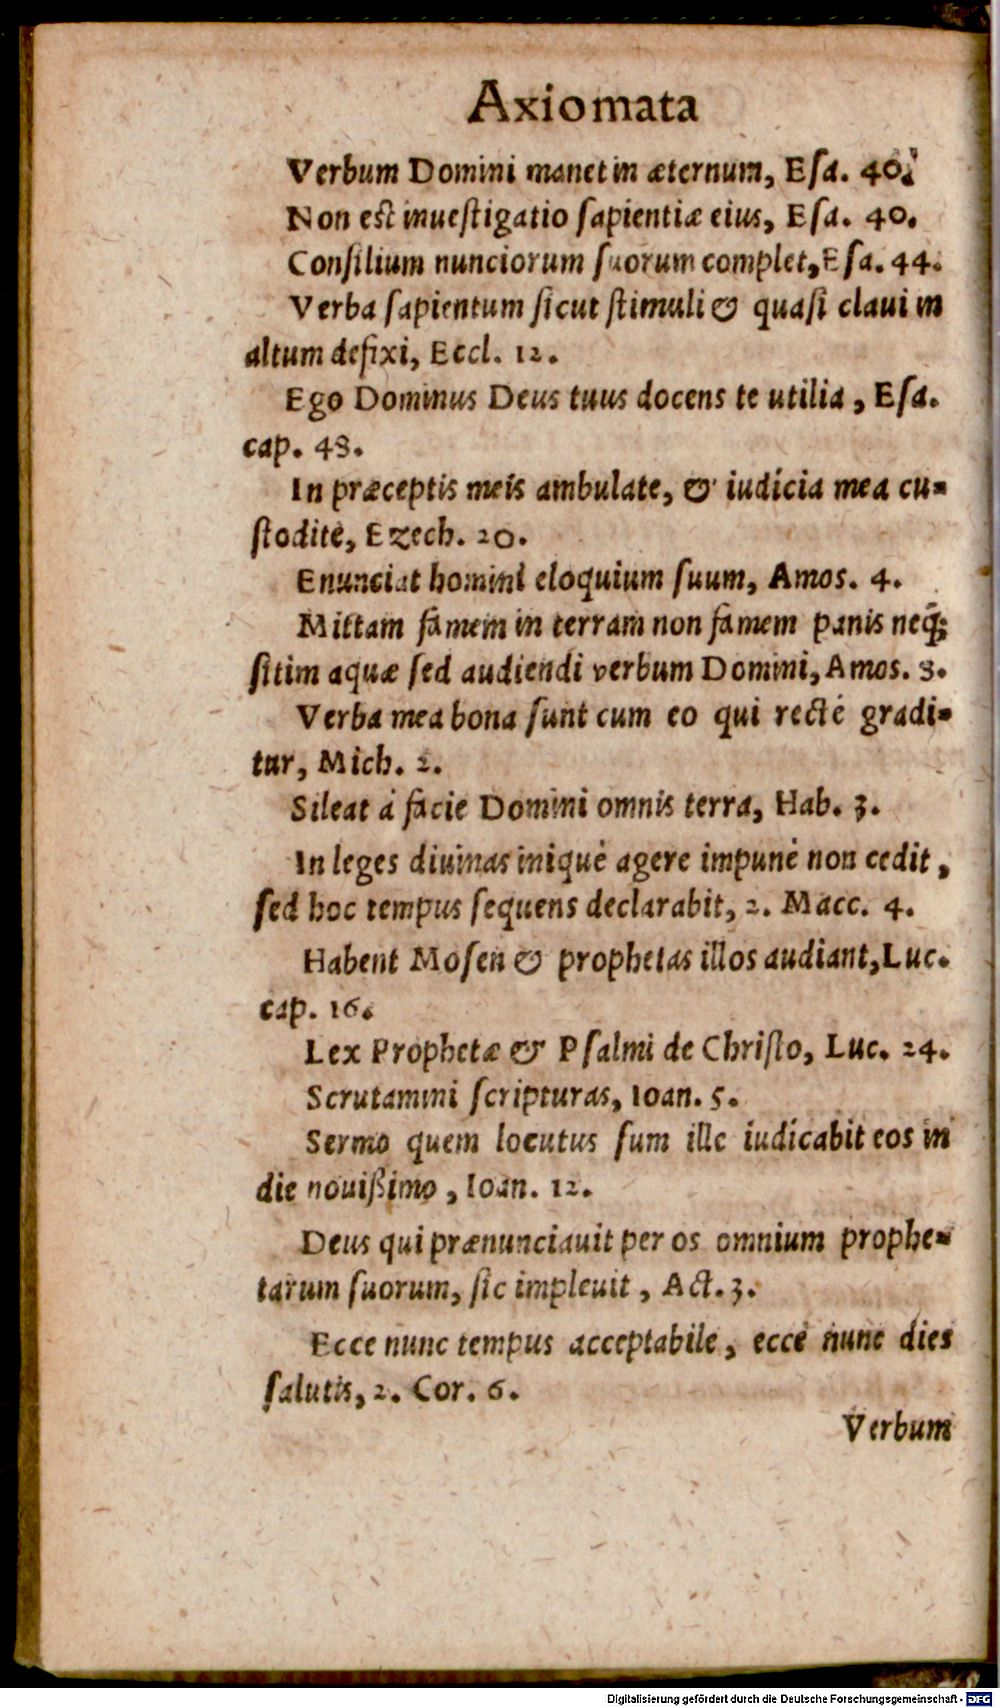 Axiomata
Verbum Domini manet in æternum, Esa. 40.
Non est inuestigatio sapientiæ eius, Esa. 40.
Consilium nunciorum suorum complet, Esa. 44.
Verba sapientum sicut stimuli & quasi claui in
altum defixi, Eccl. 12.
Ego Dominus Deus tuus docens te utilia, Esa.
cap. 48.
In præceptis meis ambulate, & iudicia mea cu-
stodite, Ezech. 20.
Enunciat homini eloquium suum, Amos. 4.
Mittam famem in terram non famem panis neq́;
sitim aquæ sed audiendi verbum Domini, Amos. 8.
Verba mea bona sunt cum eo qui rectè gradi-
tur, Mich. 2.
Sileat à facie Domini omnis terra, Hab. 3.
In leges diuinas iniquè agere impunè non cedit,
sed hoc tempus sequens declarabit, 2. Macc. 4.
Habent Mosen & prophetas illos audiant, Luc.
cap. 16.
Lex Prophetæ & Psalmi de Christo, Luc. 24.
Scrutamini scripturas, Ioan. 5.
Sermo quem locutus sum ille iudicabit eos in
die nouißimo, Ioan. 12.
Deus qui prænunciauit per os omnium prophe-
tarum suorum, sic impleuit, Act. 3.
Ecce nunc tempus acceptabile, ecce nunc dies
salutis, 2. Cor. 6.
Verbum
Digitalisierung gefördert durch die Deutsche Forschungsgemeinschaft - DFG